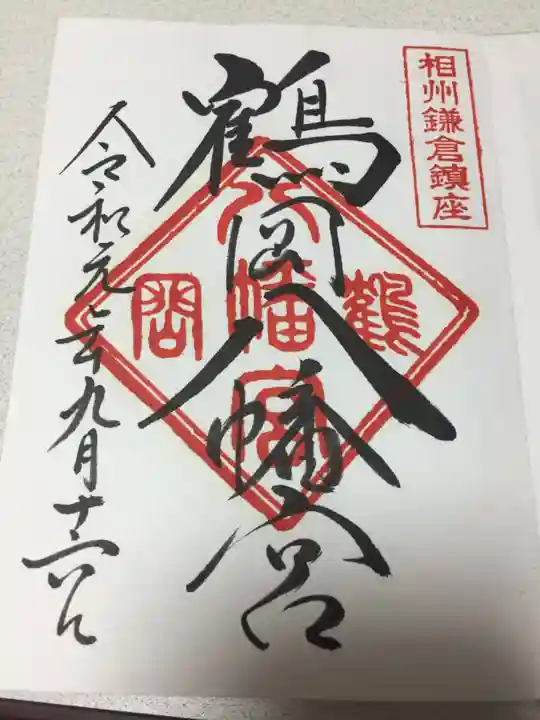 相州鎌倉鎮座
鶴岡八幡宮
鶴
八幡宮
岡
令和元年九月十六日